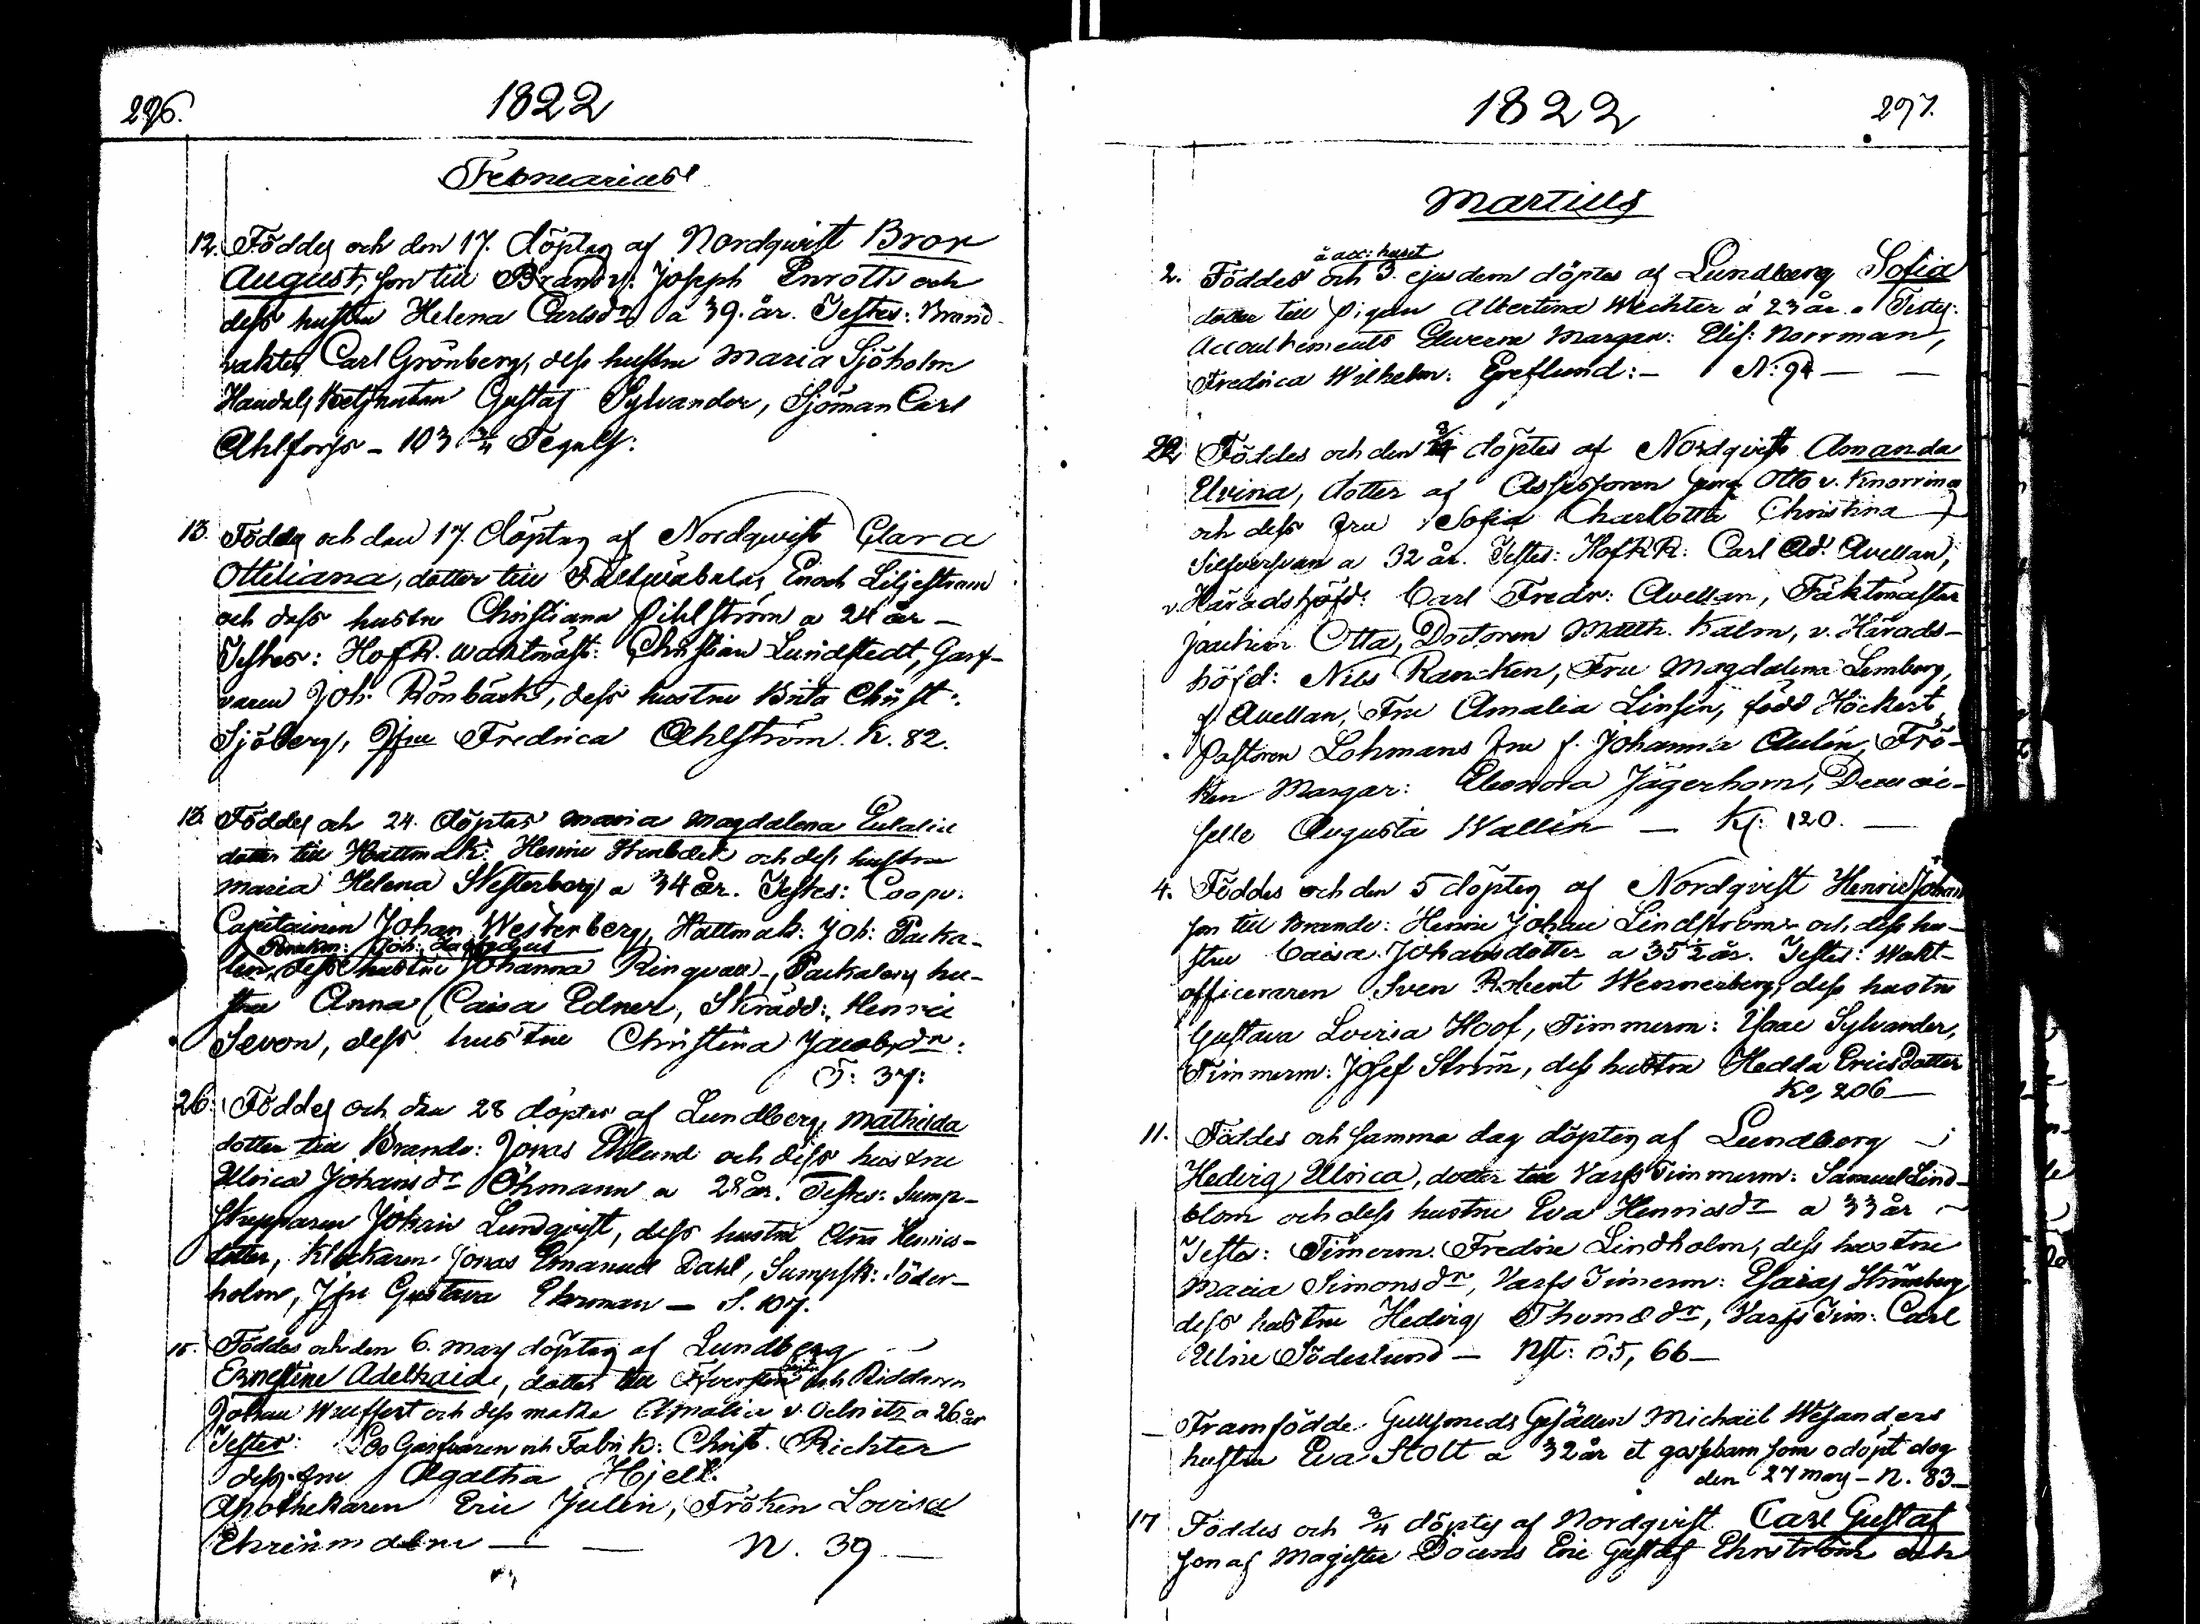 296.
1822
Februarius
12. Föddes och den 17. döptes af Nordqwist Bror
August, son till Brandv: Joseph Enroth och
dess hustru Helena Carlsdr a 39. år. Testes: Brand-
vakten Carl Grönberg, dess hustru Maria Sjöholm
Handels Gustaf Sylvander, Sjöman Carl
Ahlforss - 103 3/4 Tegelsl:
13. Föddes och den 17. döptes af Nordqvist Clara
Otteliana, dotter till Enoch Liljestrand
och dess hustru Christiana Pihlström a 24 år -
Testes: HofR. waktmäst: Christian Lundstedt, Garf-
varen Joh: Rönbäck, dess hustru Brita Christ:
Sjöberg, Jfru Fredrica Ahlström. K. 82.
18. Föddes och 24. döptes Maria Magdalena Eulalia
dotter till Hattmak: Henric och dess hustru
Maria Helena Westerberg a 34 år. Testes: Coopv:
Capitainen Johan Westerberg, Hattmak: Joh: Packa-
len, dess hustru Johanna Ringvall -, Packalens hu-
stru Anna Caisa Edner, Skrädd: Henric
Sevon, dess hustru Christina Jacobsdr:
T: 37:
26. Föddes och den 28 döptes af Lundberg, Mathilda
dotter till Brandv: Jonas Eklund och dess hustru
Ulrica Johansdr Öhmann a 28 år. Testes: Sump-
skepparen Johan Lundqvist, dess hustru Ann Henrics-
dotter, Klockaren Jonas Emanuel Dahl, Sumpsk: Söder-
holm, Jfru Gustava Ekman - S. 107.
15. Föddes och den 6. may döptes af Lundberg
Ernestine Adelhaide, dotter till och Riddaren
Johan Wulffert och dess maka Amalia v. Oelnitz a 26 år
Testes: Garfvaren och Fabrik: Christ. Richter
dess fru Agatha Hjelt.
Apothekaren Eric Julin, Fröken Lovisa
N. 39
1822
297.
Martius
å acc: huset
2. Föddes och 3. ejusdem döptes af Lundberg Sofia
dotter till pigan Albertina Wechter a 23 år. Testes:
Accouchements Margar: Elis: Norrman,
Fredrica Wilhelm: Greflund: - N: 94 -
22 Föddes och den 3/4 döptes af Nordqvist Amanda
Elvina, dotter af Assessoren Georg Otto v. Knorring
och dess fru Sofia Charlotta Christina
Silfversvan a 32 år. Testes: HofRR: Carl Ad: Avellan,
v. Häradshöfd: Carl Fredr: Avellan, Fäktmästar
Joachim Otta, Doctoren Matth. Kalm, v. Härads-
höfd: Nils Rancken, Fru Magdalena Limberg,
f. Avellan, Fru Amalia Linsén, född Höckert,
Pastoren Lohmans fru f. Johanna Aulén, Frö-
ken Margar: Eleonora Jägerhorn, Demoi-
selle Augusta Wallin - Kl: 120. -
4. Föddes och den 5 döptes af Nordqvist Henric Johan
son till Brandv: Henric Johan Lindström och dess hu-
stru Caisa Johansdotter a 35 1/2 år. Testes: Wakt-
officeraren Sven Robert Wennerberg, dess hustru
Gustava Lovisa Hoof, Timmerm: Isaac Sylvander,
Timmerm: Josef Ström, dess hustru Hedda Ericsdotter
K. 206 -
11. Föddes och samma dag döptes af Lundberg
Hedvig Ulrica, dotter till Varfs Timmerm: Samuel Lind-
blom och dess hustru Eva Henricsdr a 33 år
Testes: Timerm. Fredric Lindholm, dess hustru
Maria Simonsdr, Varfs Timerm: Esaias Strömberg
dess hustru Hedvig Thomsdr, Varfs Tim: Carl
Ulric Söderlund - Nst: 65, 66 -
- Framfödde Gullsmeds Gesällen Michaël Wesanders
hustru Eva Stolt a 32 år et gossebarn som odöpt dog
den 27 may - N. 83 -
17 Föddes och 3/4 döptes af Nordqvist Carl Gustaf
son af Magister Docens Eric Gustaf Ehrström och